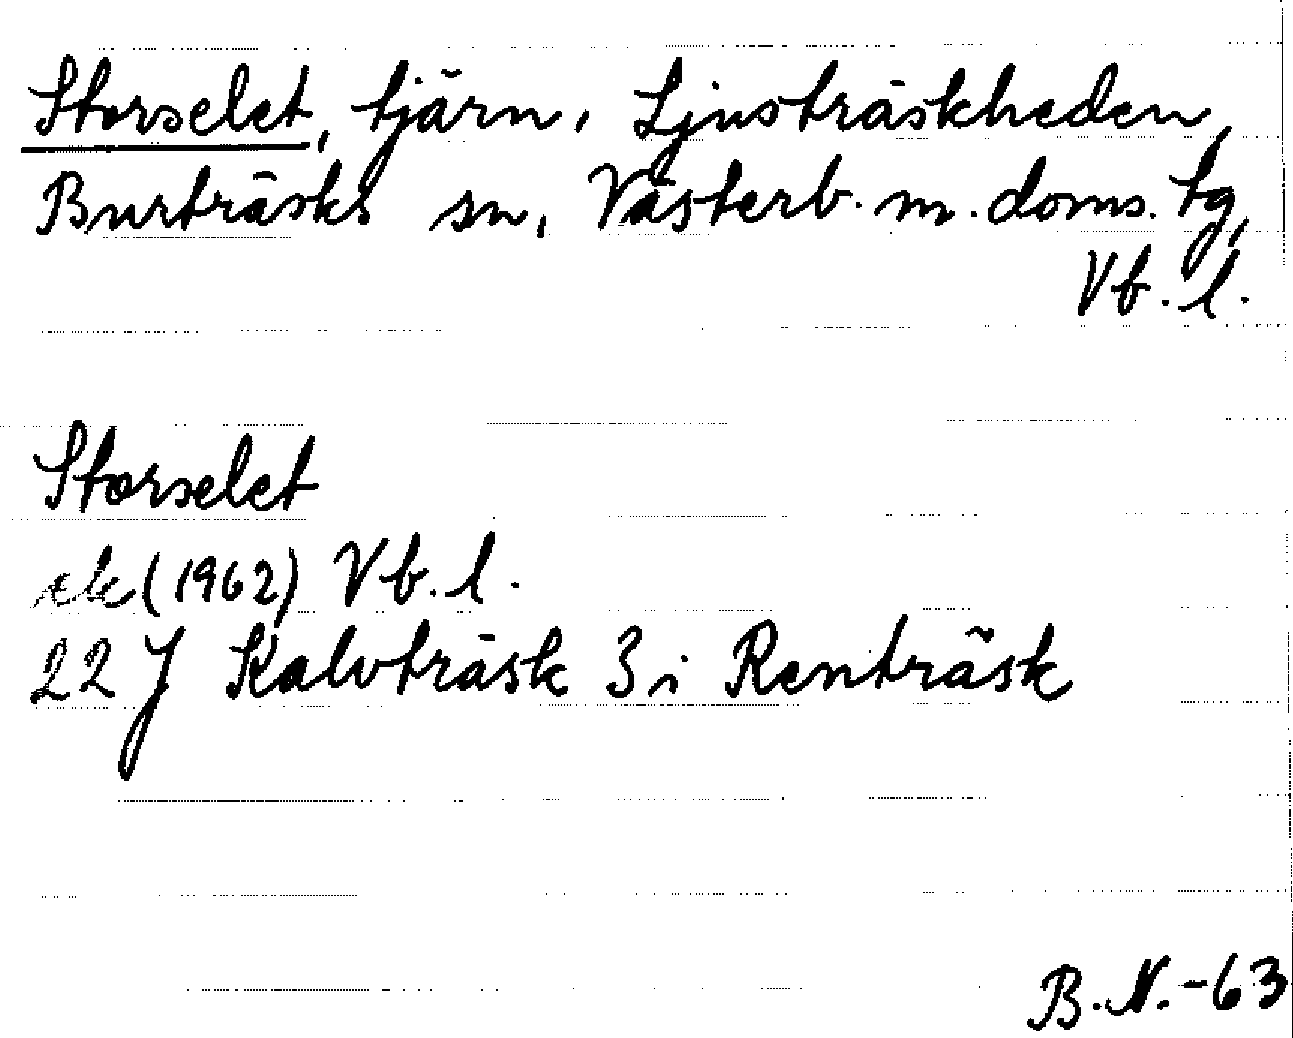 Storselet, tjärn, Ljusträskheden,
Burträsks sn, Västerb. m. doms. tg,
Vb. l.
Storselet
ek (1962) Vb. l.
22 J Kalvträsk 3 i Renträsk
B. N. -63